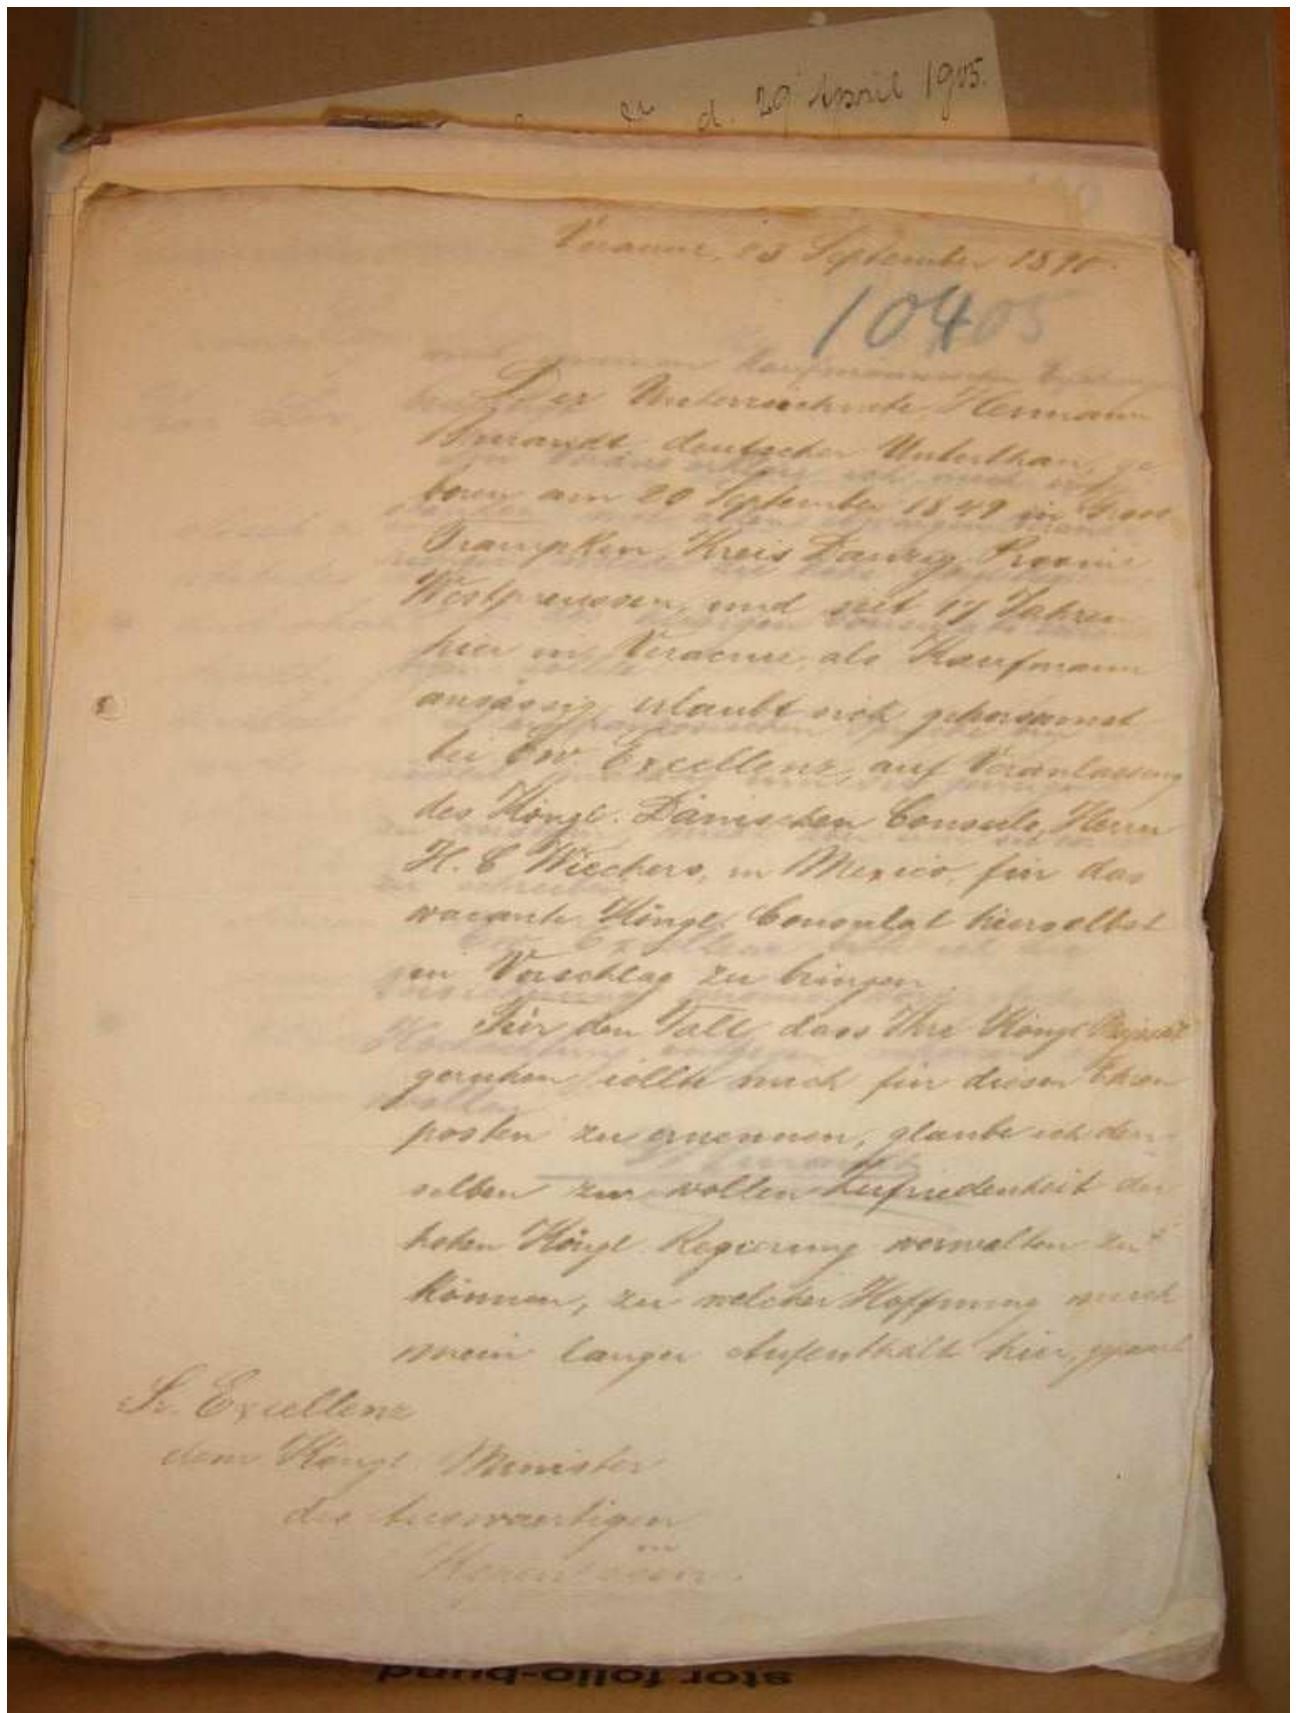 d. 29 April 1905.
Veracruz, 23 September 1890.
10405
Der Unterzeichnete, Hermann
deutscher Unterthan, ge-
boren am 20 September 1849 in Gross
Trampken, Kreis Danzig, Provinz
Westpreussen, und seit 17 Jahren
hier in Veracruz als Kaufmann
ansässig, erlaubt sich gehorsamst
bei Ew. Excellenz, auf Veranlassung
des Köngl. Dänischen Consuls, Herrn
H. C Wiechers, in Mexico, für das
vacante Köngl. Consulat hierselbst
in Vorschlag zu bringen.
Für den Fall, dass Ihre Köngl Majestät
geruhen sollte mich für diesen Ehren
posten zu ernennen, glaube ich den-
selben zur vollen Zufriedenheit der
hohen Köngl. Regierung verwalten zu
können, zu welcher Hoffnung mich
mein langer Aufenthalt hier, gepaart
Sr. Excellenz
dem Köngl. Minister
des Auswaertigen
in
Kopenhagen.
stor folio-bund